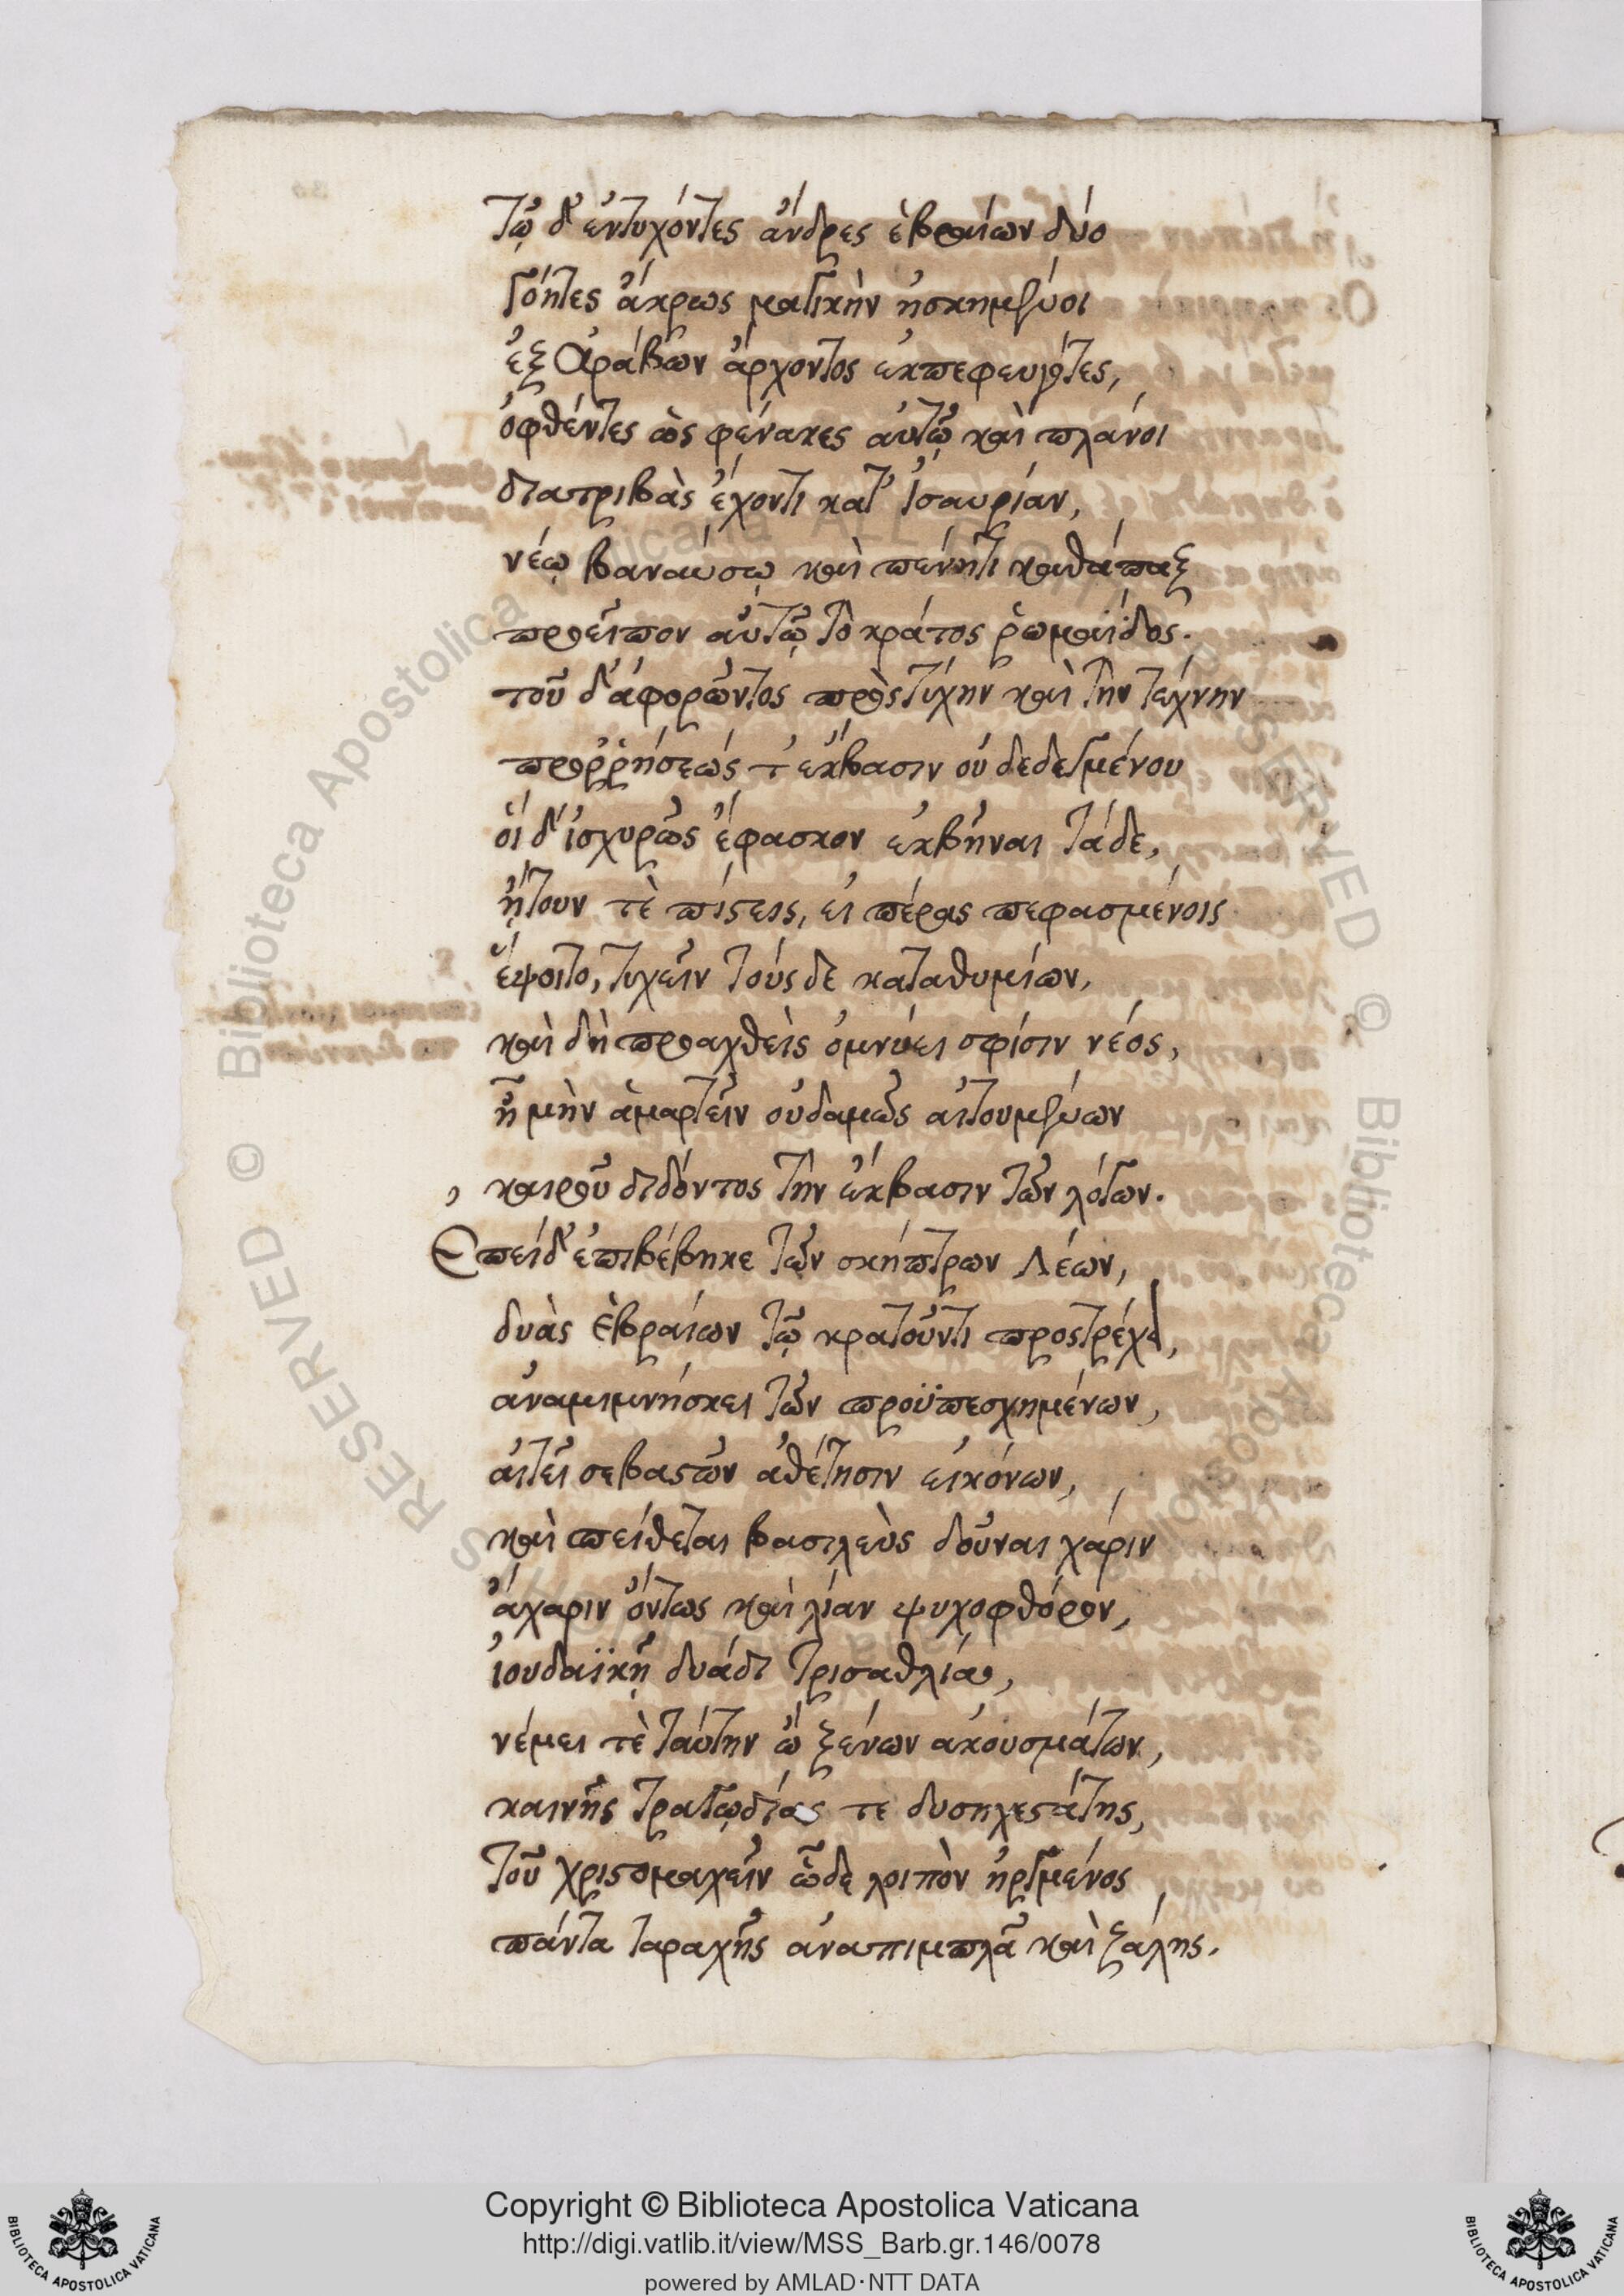 Τῷ δ' ἐντυχόντες ἄνδρες ἑβραίων δύο
Γόητες ἄκρως μαγικὴν ἠσκημένοι
ἐξ Ἀράβων ἄρχοντος ἐκπεφευγότες,
ὀφθέντες ὡς φένακες αὐτῷ καὶ πλάνοι
διατριβὰς ἔχοντι κατ' Ἰσαυρίαν,
νέῳ βαναύσῳ καὶ πένητι καθάπαξ
προεῖπον αὐτῷ τὸ κράτος ῥωμαΐδος.
τοῦ δ' ἀφορῶντος πρὸς τύχην καὶ τὴν τέχνην
προῤῥήσεώς τ' ἔκβασιν οὐ δεδεγμένου
οἱ δ' ἰσχυρῶς ἔφασκον ἐκβῆναι τάδε,
ᾔτουν τὲ πίστεις, εἰ πέρας πεφασμένοις
ἕψοιτο, τυχεῖν τούς δε καταθυμίων,
καὶ δὴ προαχθεὶς ὀμνύει σφίσιν νέος,
ἦ μὴν ἁμαρτεῖν οὐδαμῶς αἰτουμένων
, καιροῦ διδόντος τὴν ἔκβασιν τῶν λόγων.
Ἐπεί δ' ἐπιβέβηκε τῶν σκήπτρων Λέων,
δυὰς ἑβραίων τῷ κρατοῦντι προστρέχει,
ἀναμιμνήσκει τῶν προϋπεσχημένων,
αἰτεῖ σεβαστῶν ἀθέτησιν εἰκόνων,
καὶ πείθεται βασιλεὺς δοῦναι χάριν
ἄχαριν ὄντως καὶ λίαν ψυχοφθόρον,
ἰουδαϊκῇ δυάδι τρισαθλίᾳ,
νέμει τὲ ταύτην ὢ ξένων ἀκουσμάτων,
καινῆς τραγῳδίας τε δυσηχεστάτης,
τοῦ χριστομαχεῖν ὧδε λοιπὸν ἠργμένος
πάντα ταραχῆς ἀναπιμπλᾷ καὶ ζάλης.
Copyright © Biblioteca Apostolica Vaticana
http://digi.vatlib.it/view/MSS_Barb.gr.146/0078
powered by AMLAD·NTT DATA